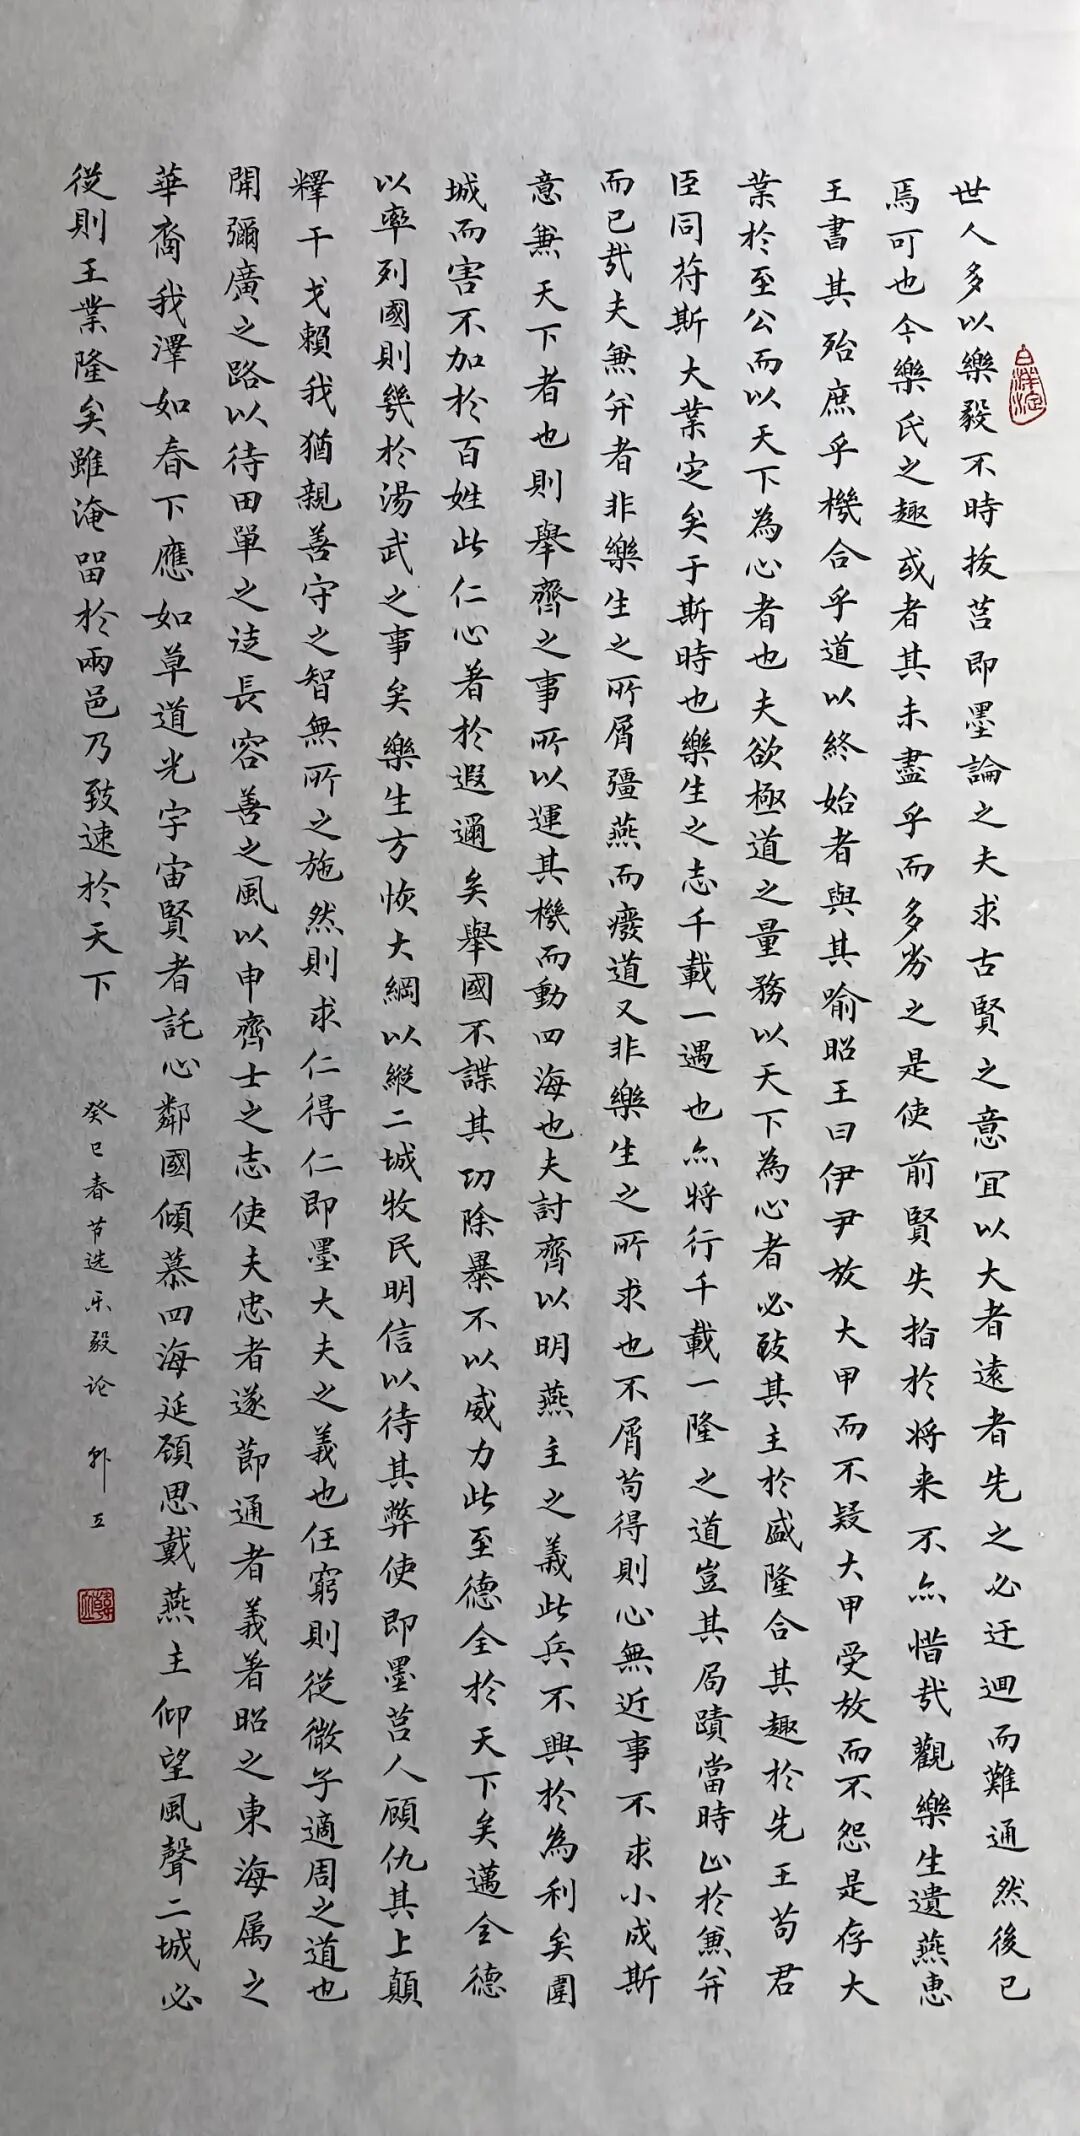 世人多以樂毅不時拔莒即墨論之夫求古賢之意宜以大者遠者先之必迂迴而難通然後已
焉可也今樂氏之趣或者其未盡乎而多劣之是使前賢失指於将来不亦惜哉觀樂生遺燕惠
王書其殆庶乎機合乎道以終始者與其喻昭王曰伊尹放大甲而不疑大甲受放而不怨是存大
業於至公而以天下為心者也夫欲極道之量務以天下為心者必致其主於盛隆合其趣於先王苟君
臣同符斯大業定矣于斯時也樂生之志千載一遇也亦將行千載一隆之道豈其局蹟當時止於兼并
而已哉夫兼并者非樂生之所屑彊燕而癈道又非樂生之所求也不屑苟得則心無近事不求小成斯
意兼天下者也則舉齊之事所以運其機而動四海也夫討齊以明燕主之義此兵不興於為利矣圍
城而害不加於百姓此仁心著於遐邇矣舉國不謀其功除暴不以威力此至德全於天下矣邁全德
以率列國則幾於湯武之事矣樂生方恢大綱以縱二城牧民明信以待其弊使即墨莒人顧仇其上顛
釋干戈賴我猶親善守之智無所之施然則求仁得仁即墨大夫之義也任窮則從微子適周之道也
開彌廣之路以待田單之徒長容善之風以申齊士之志使夫忠者遂節通者義著昭之東海属之
華裔我澤如春下應如草道光宇宙賢者託心鄰國傾慕四海延頸思戴燕主仰望風聲二城必
從則王業隆矣雖淹留於兩邑乃致速於天下
癸巳春节选乐毅论